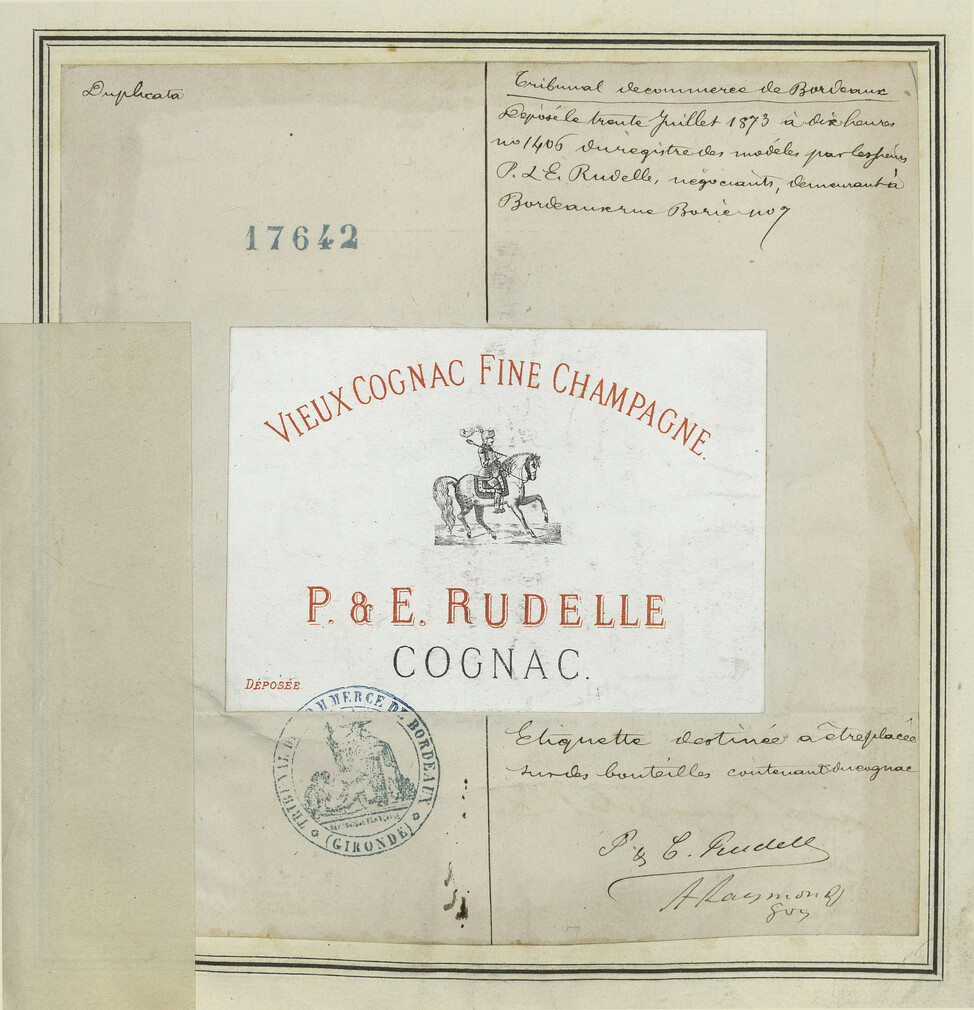 Duplicata
Tribunal de commerce de Bordeaux
Déposé le trente Juillet 1873 à dix heures
no 1406 du registre des modèles par les sieurs
P. & E. Rudelle, négociants, demeurant à
Bordeaux rue Borie no 7
17642
VIEUX COGNAC FINE CHAMPAGNE.
P. & E. RUDELLE
COGNAC.
DÉPOSÉE
TRIBUNAL DE COMMERCE DE BORDEAUX
RÉPUBLIQUE FRANÇAISE
(GIRONDE)
Etiquette destinée à être placée
sur des bouteilles contenant du cognac
P & E. Rudelle
A Raymond